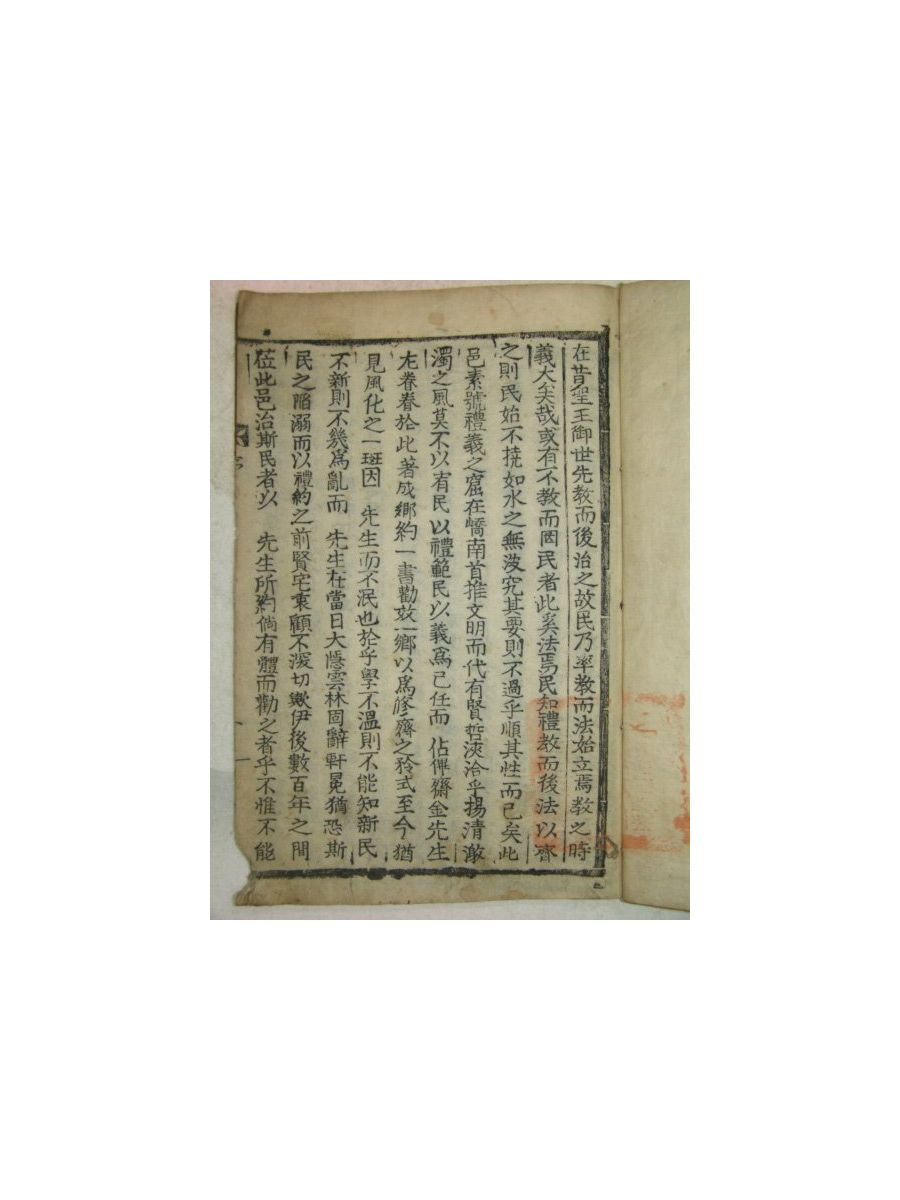 在昔聖王御世先教而後治之故民乃率教而法始立焉教之時
義大矣哉或有不教而罔民者此奚法焉民知禮教而後法以齊
之則民始不撓如水之無波究其要則不過乎順其性而已矣此
邑素號禮義之窟在嶠南首推文明而代有賢哲浹洽乎揚清激
濁之風莫不以有民以禮範民以義爲己任而 佔俾齋金先生
尤眷眷於此著成鄉約一書勸效一鄉以爲修齊之矜式至今猶
見風化之一斑因 先生而不泯也於乎學不溫則不能知新民
不新則不幾爲亂而 先生在當日大隱雲林固辭軒冕猶恐斯
民之陷溺而以禮約之前賢宅衷顧不深切歟伊後數百年之間
莅此邑治斯民者以 先生所約倘有體而勸之者乎不惟不能